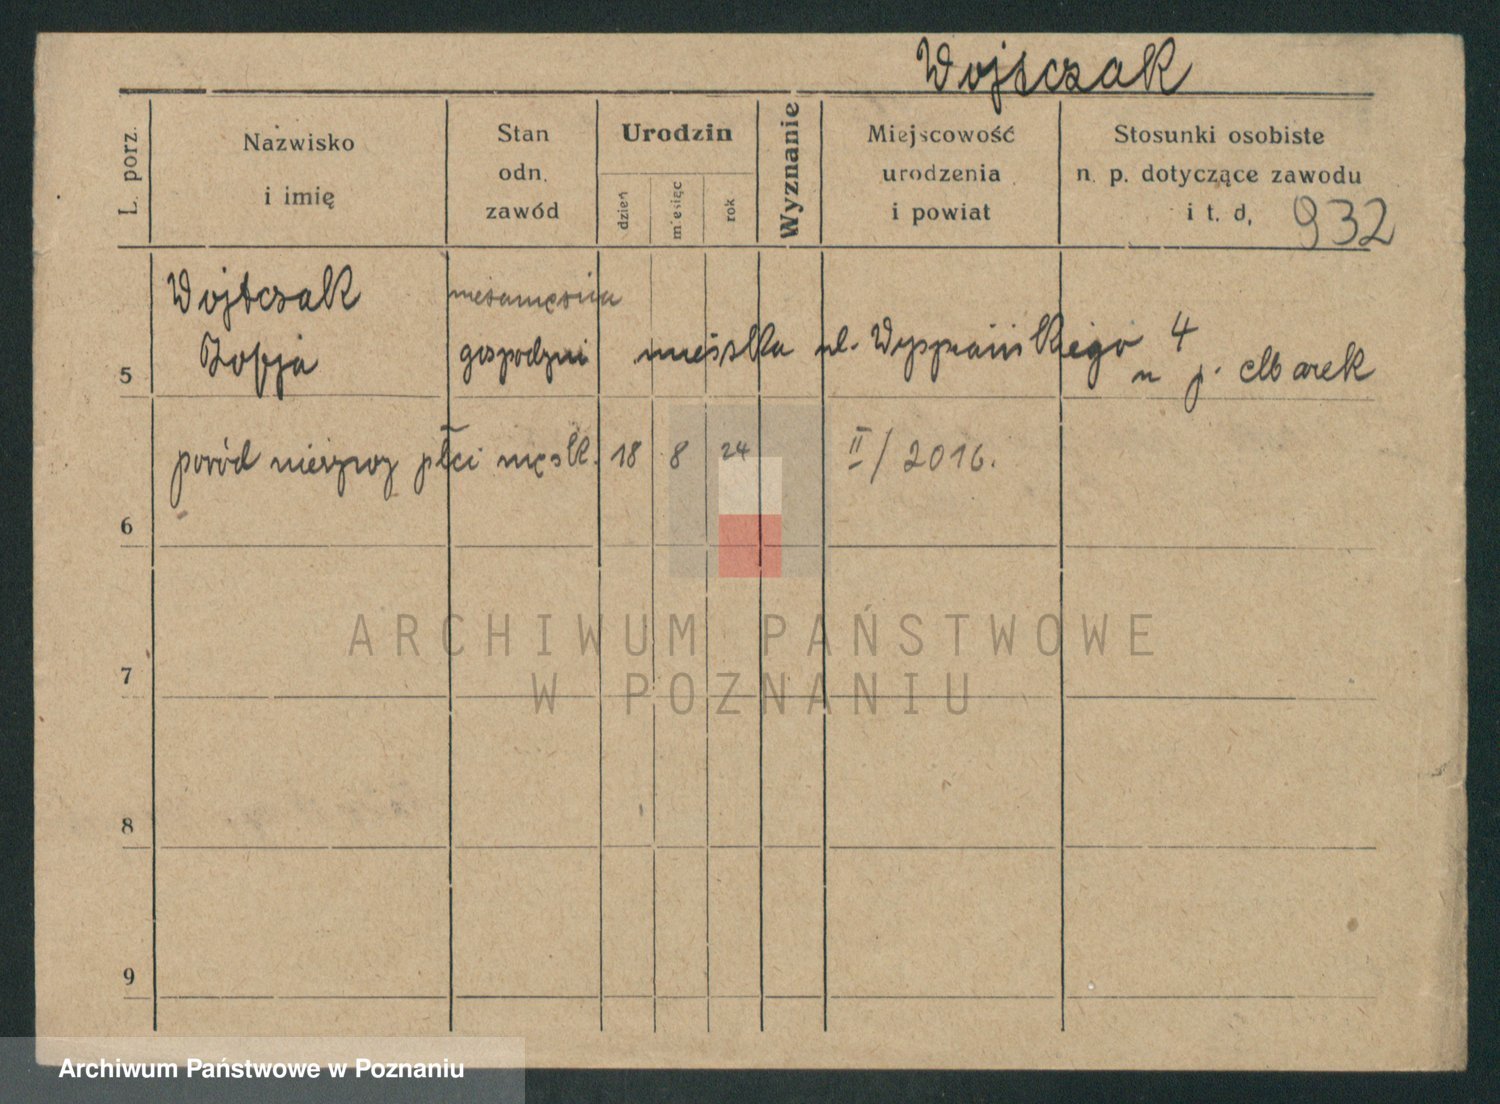 Wojtczak
L. porz.
Nazwisko
i imię
Stan
odn.
zawód
Urodzin
dzień
miesiąc
rok
Wyznanie
Miejscowość
urodzenia
i powiat
Stosunki osobiste
n. p. dotyczące zawodu
i t. d.
932
Wojtczak niezamężna
Zofja gospodyni mieszka ul. Wyspiańskiego 4
5 u p.
poród nieżywy płci męsk. 18 8 24 II/2016.
6
ARCHIWUM PAŃSTWOWE
W POZNANIU
7
8
9
Archiwum Państwowe w Poznaniu